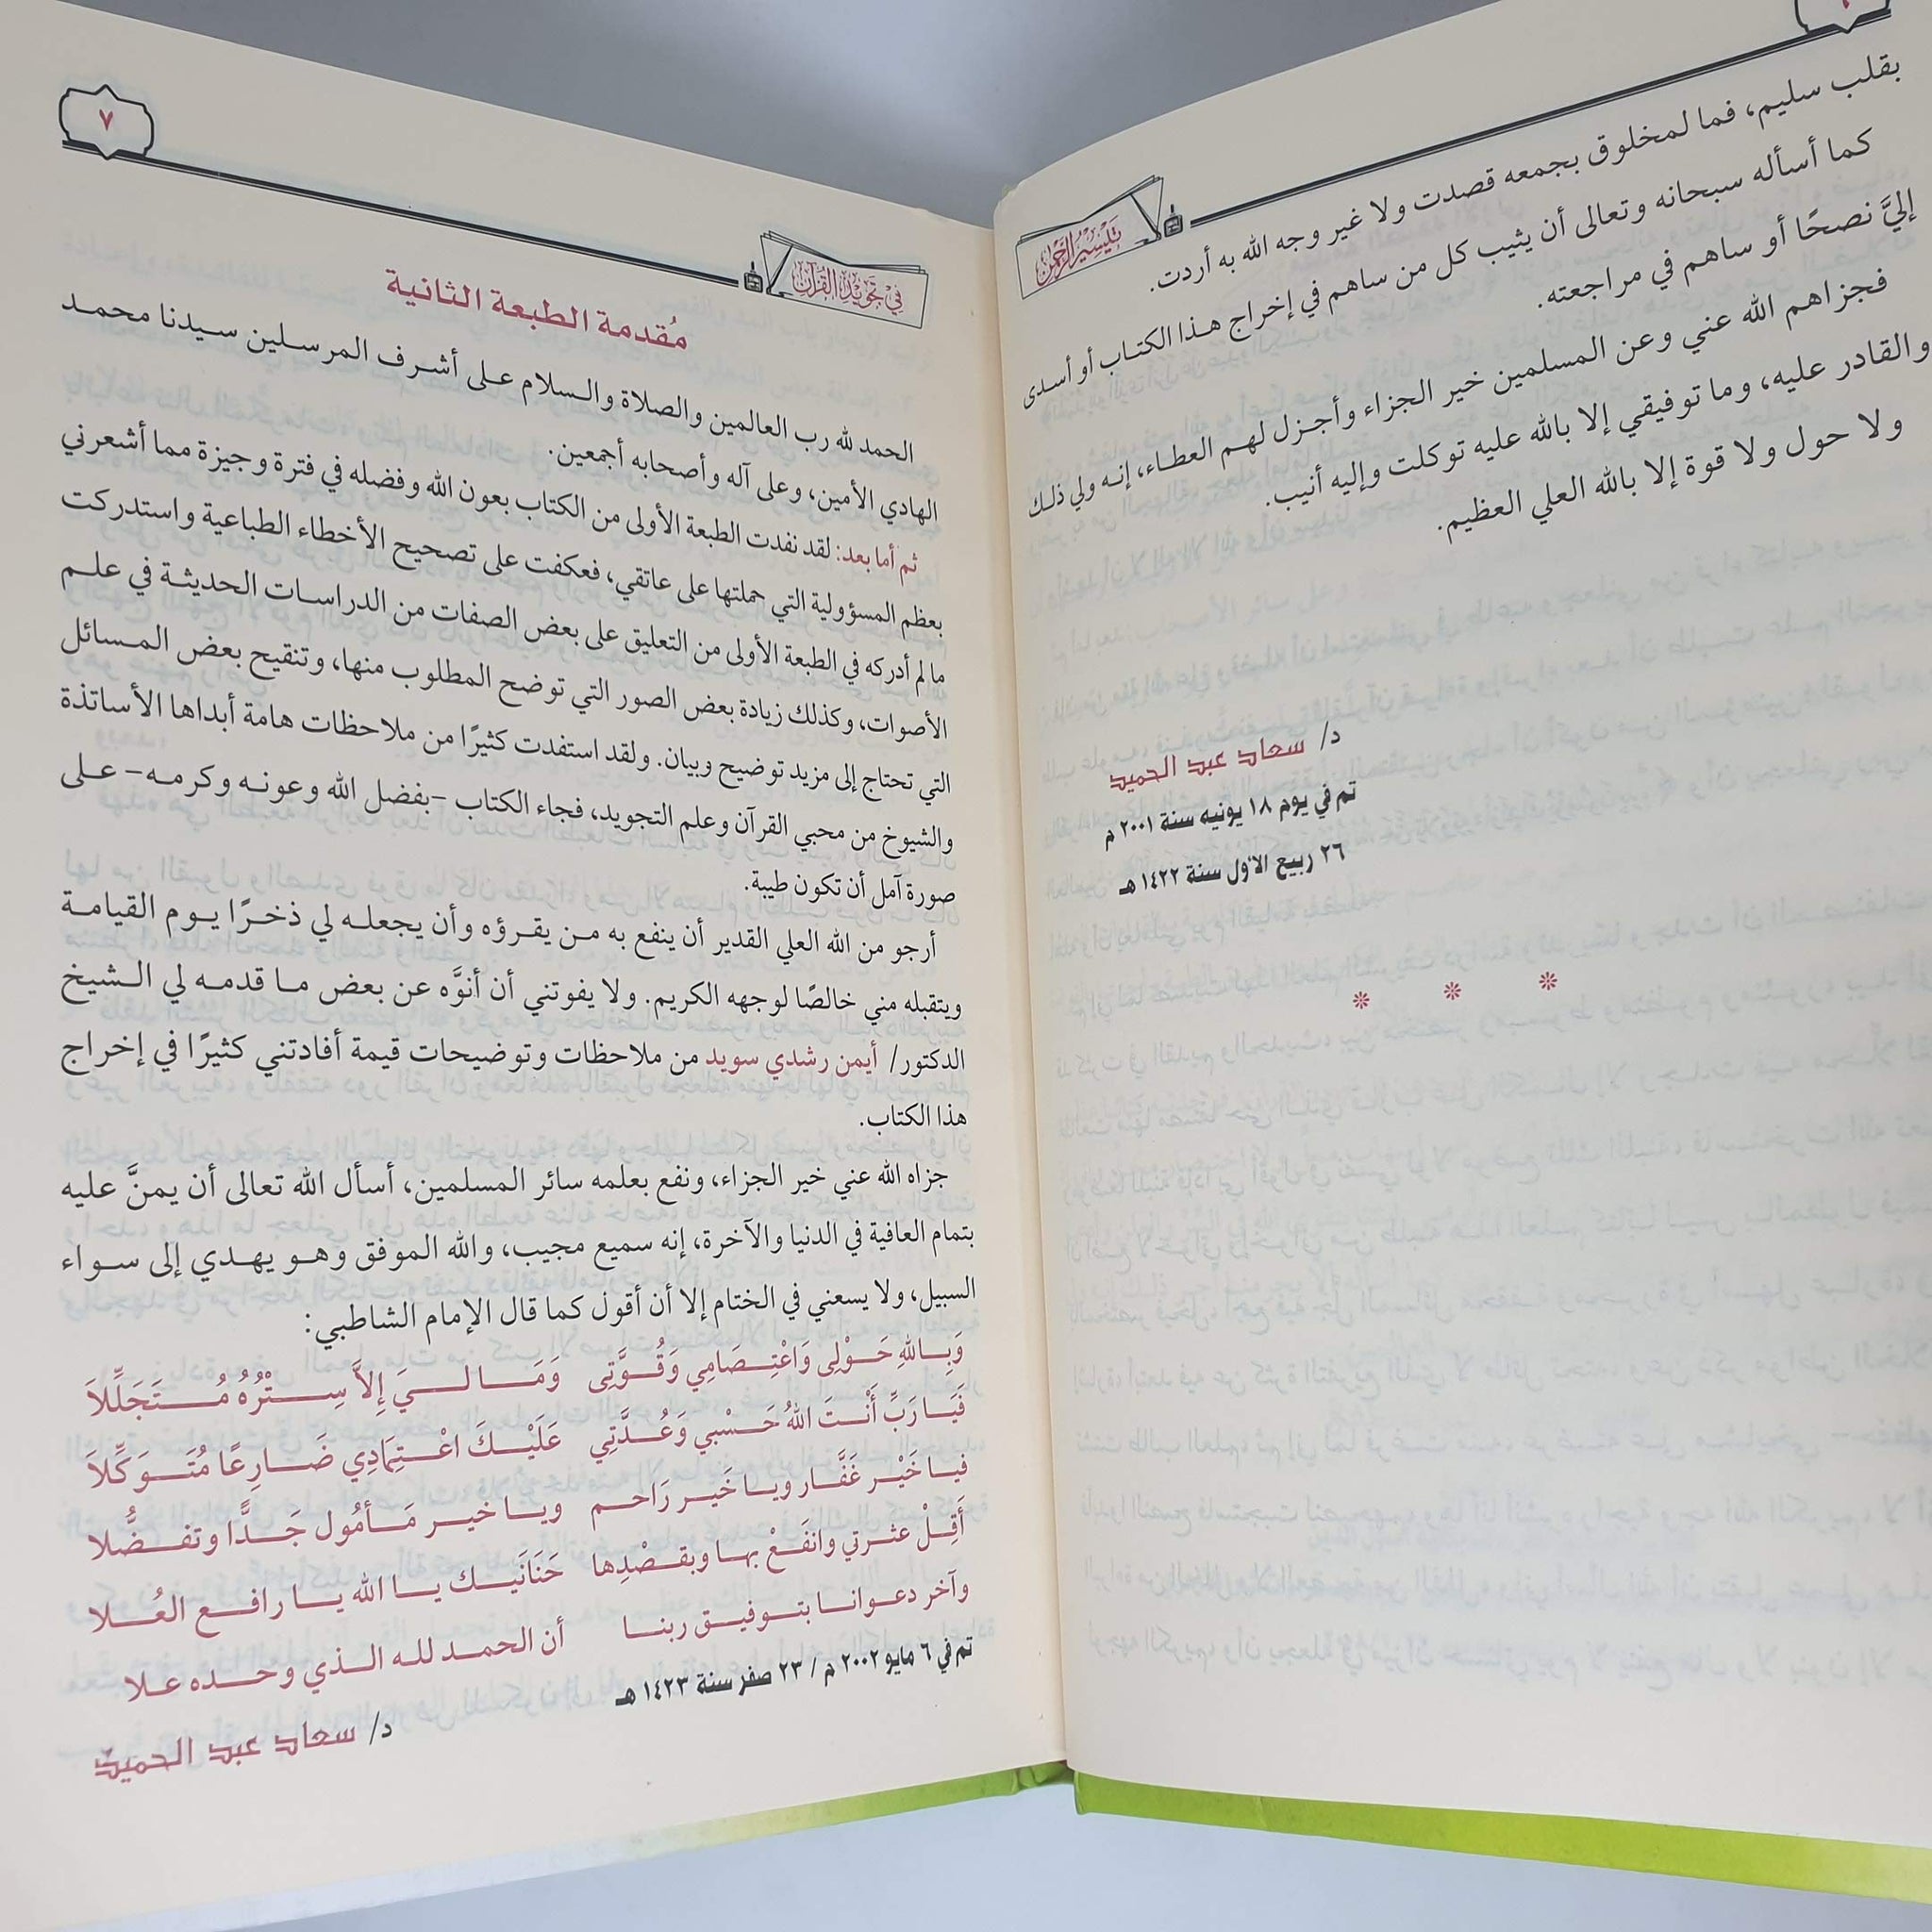 تيسير الرحمن
بقلب سليم، فما لمخلوق بجمعه قصدت ولا غير وجه الله به أردت.
كما أسأله سبحانه وتعالى أن يثيب كل من ساهم في إخراج هذا الكتاب أو أسدى
إليَّ نصحًا أو ساهم في مراجعته.
فجزاهم الله عني وعن المسلمين خير الجزاء وأجزل لهم العطاء، إنه ولي ذلك
والقادر عليه، وما توفيقي إلا بالله عليه توكلت وإليه أنيب.
ولا حول ولا قوة إلا بالله العلي العظيم.
د/ سعاد عبد الحميد
تم في يوم ١٨ يونيه سنة ٢٠٠١ م
٢٦ ربيع الأول سنة ١٤٢٢ هـ
* * *
في تجويد القرآن
٧
مُقدمة الطبعة الثانية
الحمد لله رب العالمين والصلاة والسلام على أشرف المرسلين سيدنا محمد
الهادي الأمين، وعلى آله وأصحابه أجمعين.
ثم أما بعد: لقد نفدت الطبعة الأولى من الكتاب بعون الله وفضله في فترة وجيزة مما أشعرني
بعظم المسؤولية التي حملتها على عاتقي، فعكفت على تصحيح الأخطاء الطباعية واستدركت
ما لم أدركه في الطبعة الأولى من التعليق على بعض الصفات من الدراسات الحديثة في علم
الأصوات، وكذلك زيادة بعض الصور التي توضح المطلوب منها، وتنقيح بعض المسائل
التي تحتاج إلى مزيد توضيح وبيان. ولقد استفدت كثيرًا من ملاحظات هامة أبداها الأساتذة
والشيوخ من محبي القرآن وعلم التجويد، فجاء الكتاب -بفضل الله وعونه وكرمه- على
صورة آمل أن تكون طيبة.
أرجو من الله العلي القدير أن ينفع به من يقرؤه وأن يجعله لي ذخرًا يوم القيامة
ويتقبله مني خالصًا لوجهه الكريم. ولا يفوتني أن أنوَّه عن بعض ما قدمه لي الشيخ
الدكتور/ أيمن رشدي سويد من ملاحظات وتوضيحات قيمة أفادتني كثيرًا في إخراج
هذا الكتاب.
جزاه الله عني خير الجزاء، ونفع بعلمه سائر المسلمين، أسأل الله تعالى أن يمنَّ عليه
بتمام العافية في الدنيا والآخرة، إنه سميع مجيب، والله الموفق وهو يهدي إلى سواء
السبيل، ولا يسعني في الختام إلا أن أقول كما قال الإمام الشاطبي:
وَبِاللهِ حَوْلِى وَاعْتِصَامِي وَقُوَّتِى وَمَا لِيَ إِلاَّ سِتْرُهُ مُتَجَلِّلاَ
فَيَا رَبِّ أَنْتَ اللهُ حَسْبي وَعُدَّتِي عَلَيْكَ اعْتِمَادِي ضَارِعًا مُتَوَكِّلاَ
فيا خَيْر غَفَّار ويا خَير رَاحم ويا خير مَأمُول جَدًّا وتفضُّلا
أَقِلْ عثرتي وانفَعْ بها وبقصْدِها حَنَانَيك يا الله يا رافع العُلا
وآخر دعوانا بتوفيق ربنا أن الحمد لله الذي وحده علا
تم في ٦ مايو ٢٠٠٢ م / ٢٣ صفر سنة ١٤٢٣ هـ
د/ سعاد عبد الحميد